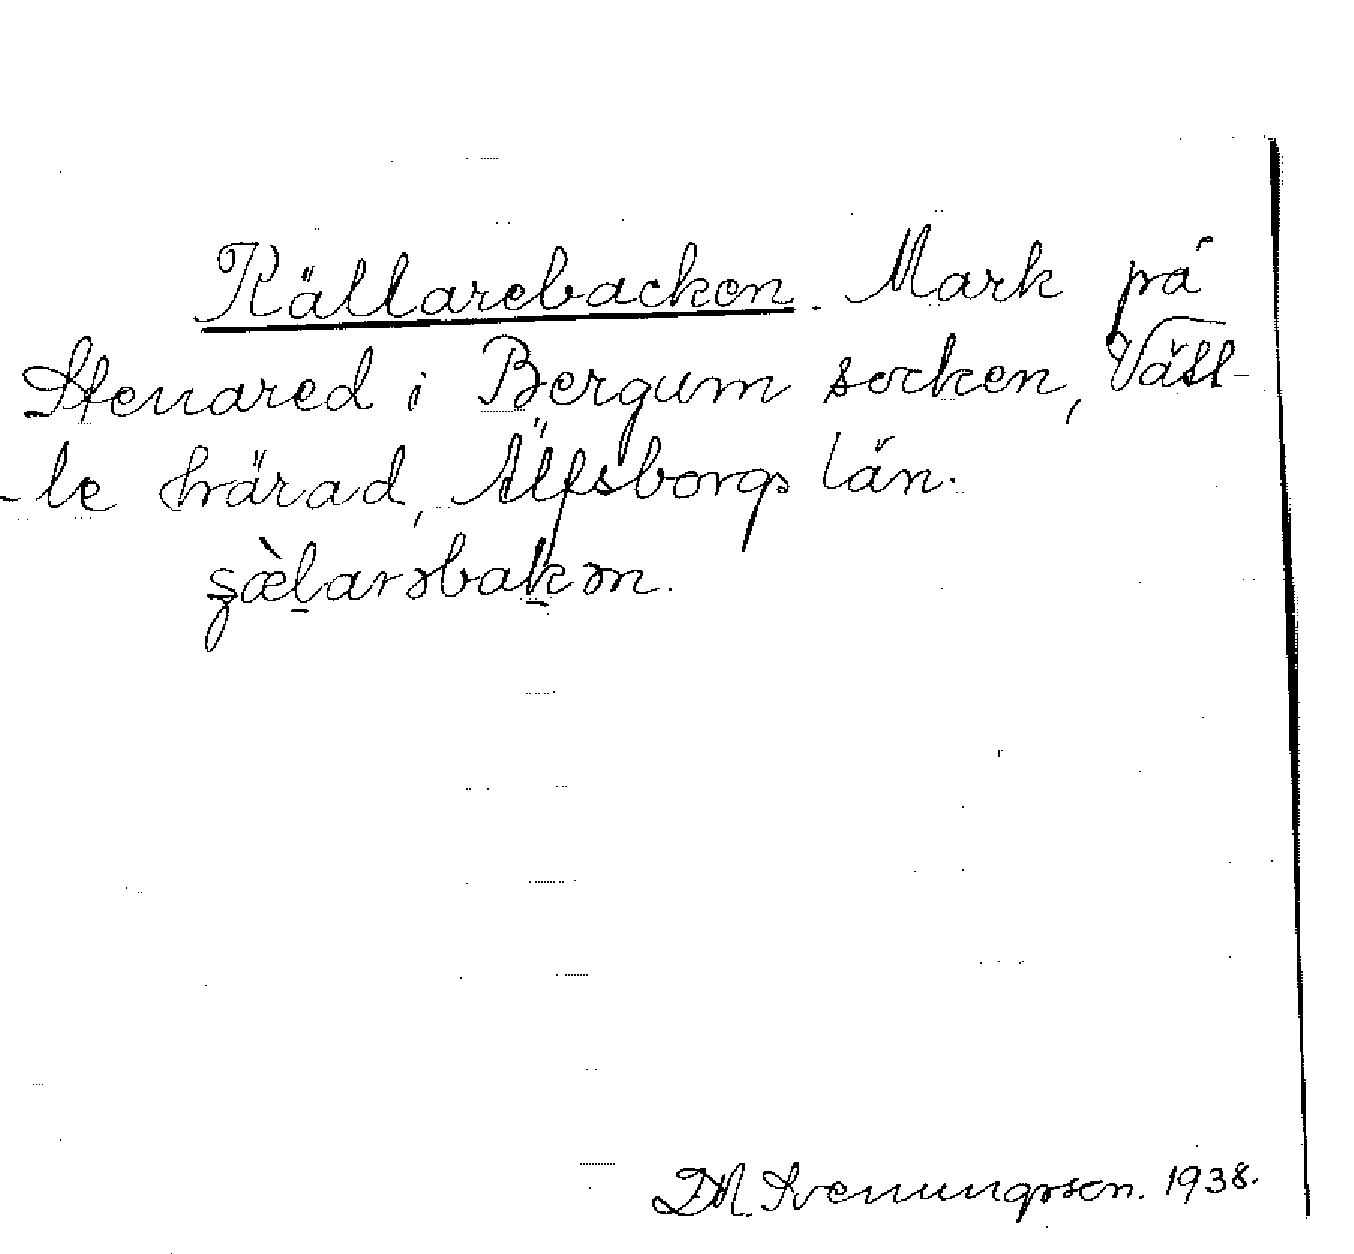 Källarebacken. Mark på
Stenared i Bergum socken, Vätt-
-le härad, Älfsborgs län.
ʂæ̀l̠arəbak̠ən.
D.A. Svenungsson. 1938.